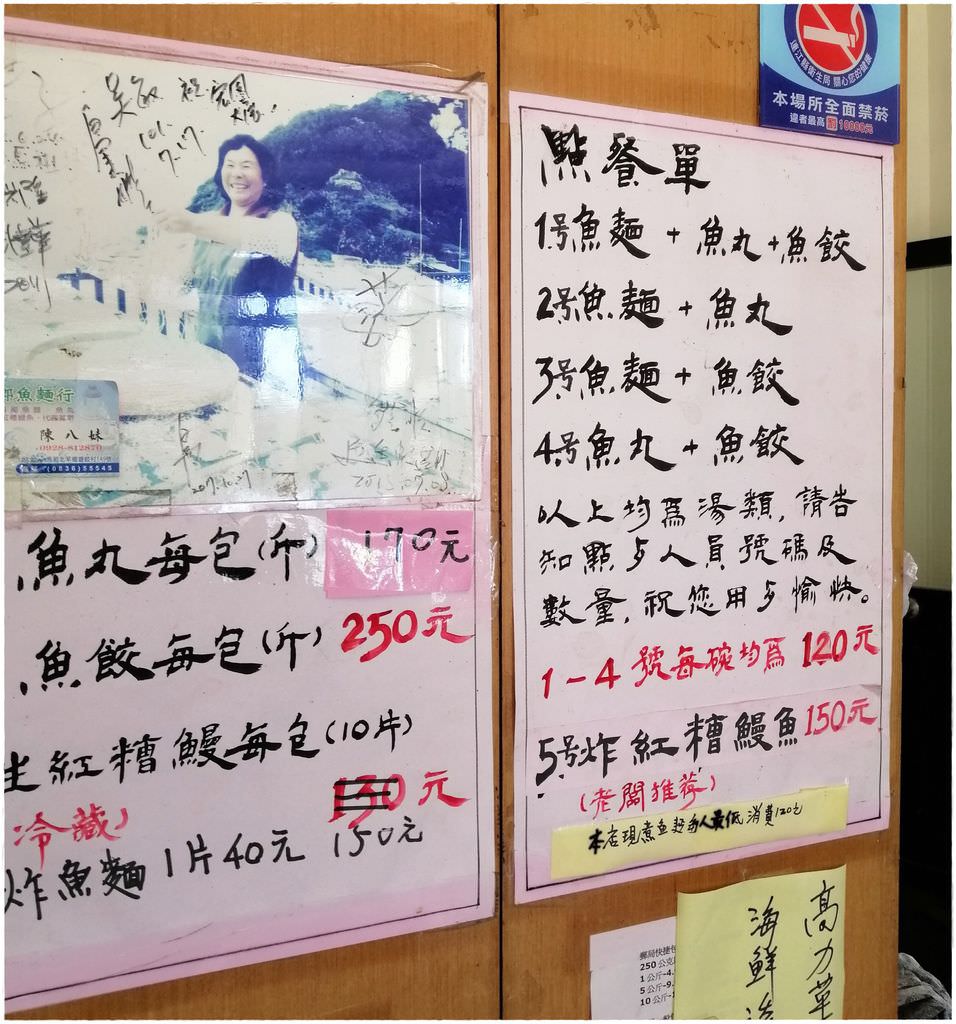 吳敏
101.
7.17
魚麵行
陳八妹
0928-812870
(0836)55545
2017.10.27
魚丸每包(斤) 170元
魚餃每包(斤) 250元
生紅糟鰻每包(10片)
冷藏) 元
150元
炸魚麵1片40元
連江縣衛生局 關心您的健康
本場所全面禁菸
違者最高罰10000元
點餐單
1号魚麵+魚丸+魚餃
2号魚麵+魚丸
3号魚麵+魚餃
4号魚丸+魚餃
以上均為湯類,請告
知點歺人員號碼及
數量,祝您用歺愉快。
1-4號每碗均為120元
5号炸紅糟鰻魚150元
(老闆推荐)
本店現煮魚麵每人最低消費120元
郵局快捷包
250公克
1公斤-4.
5公斤-9.
10公斤-1
高力草
海鮮